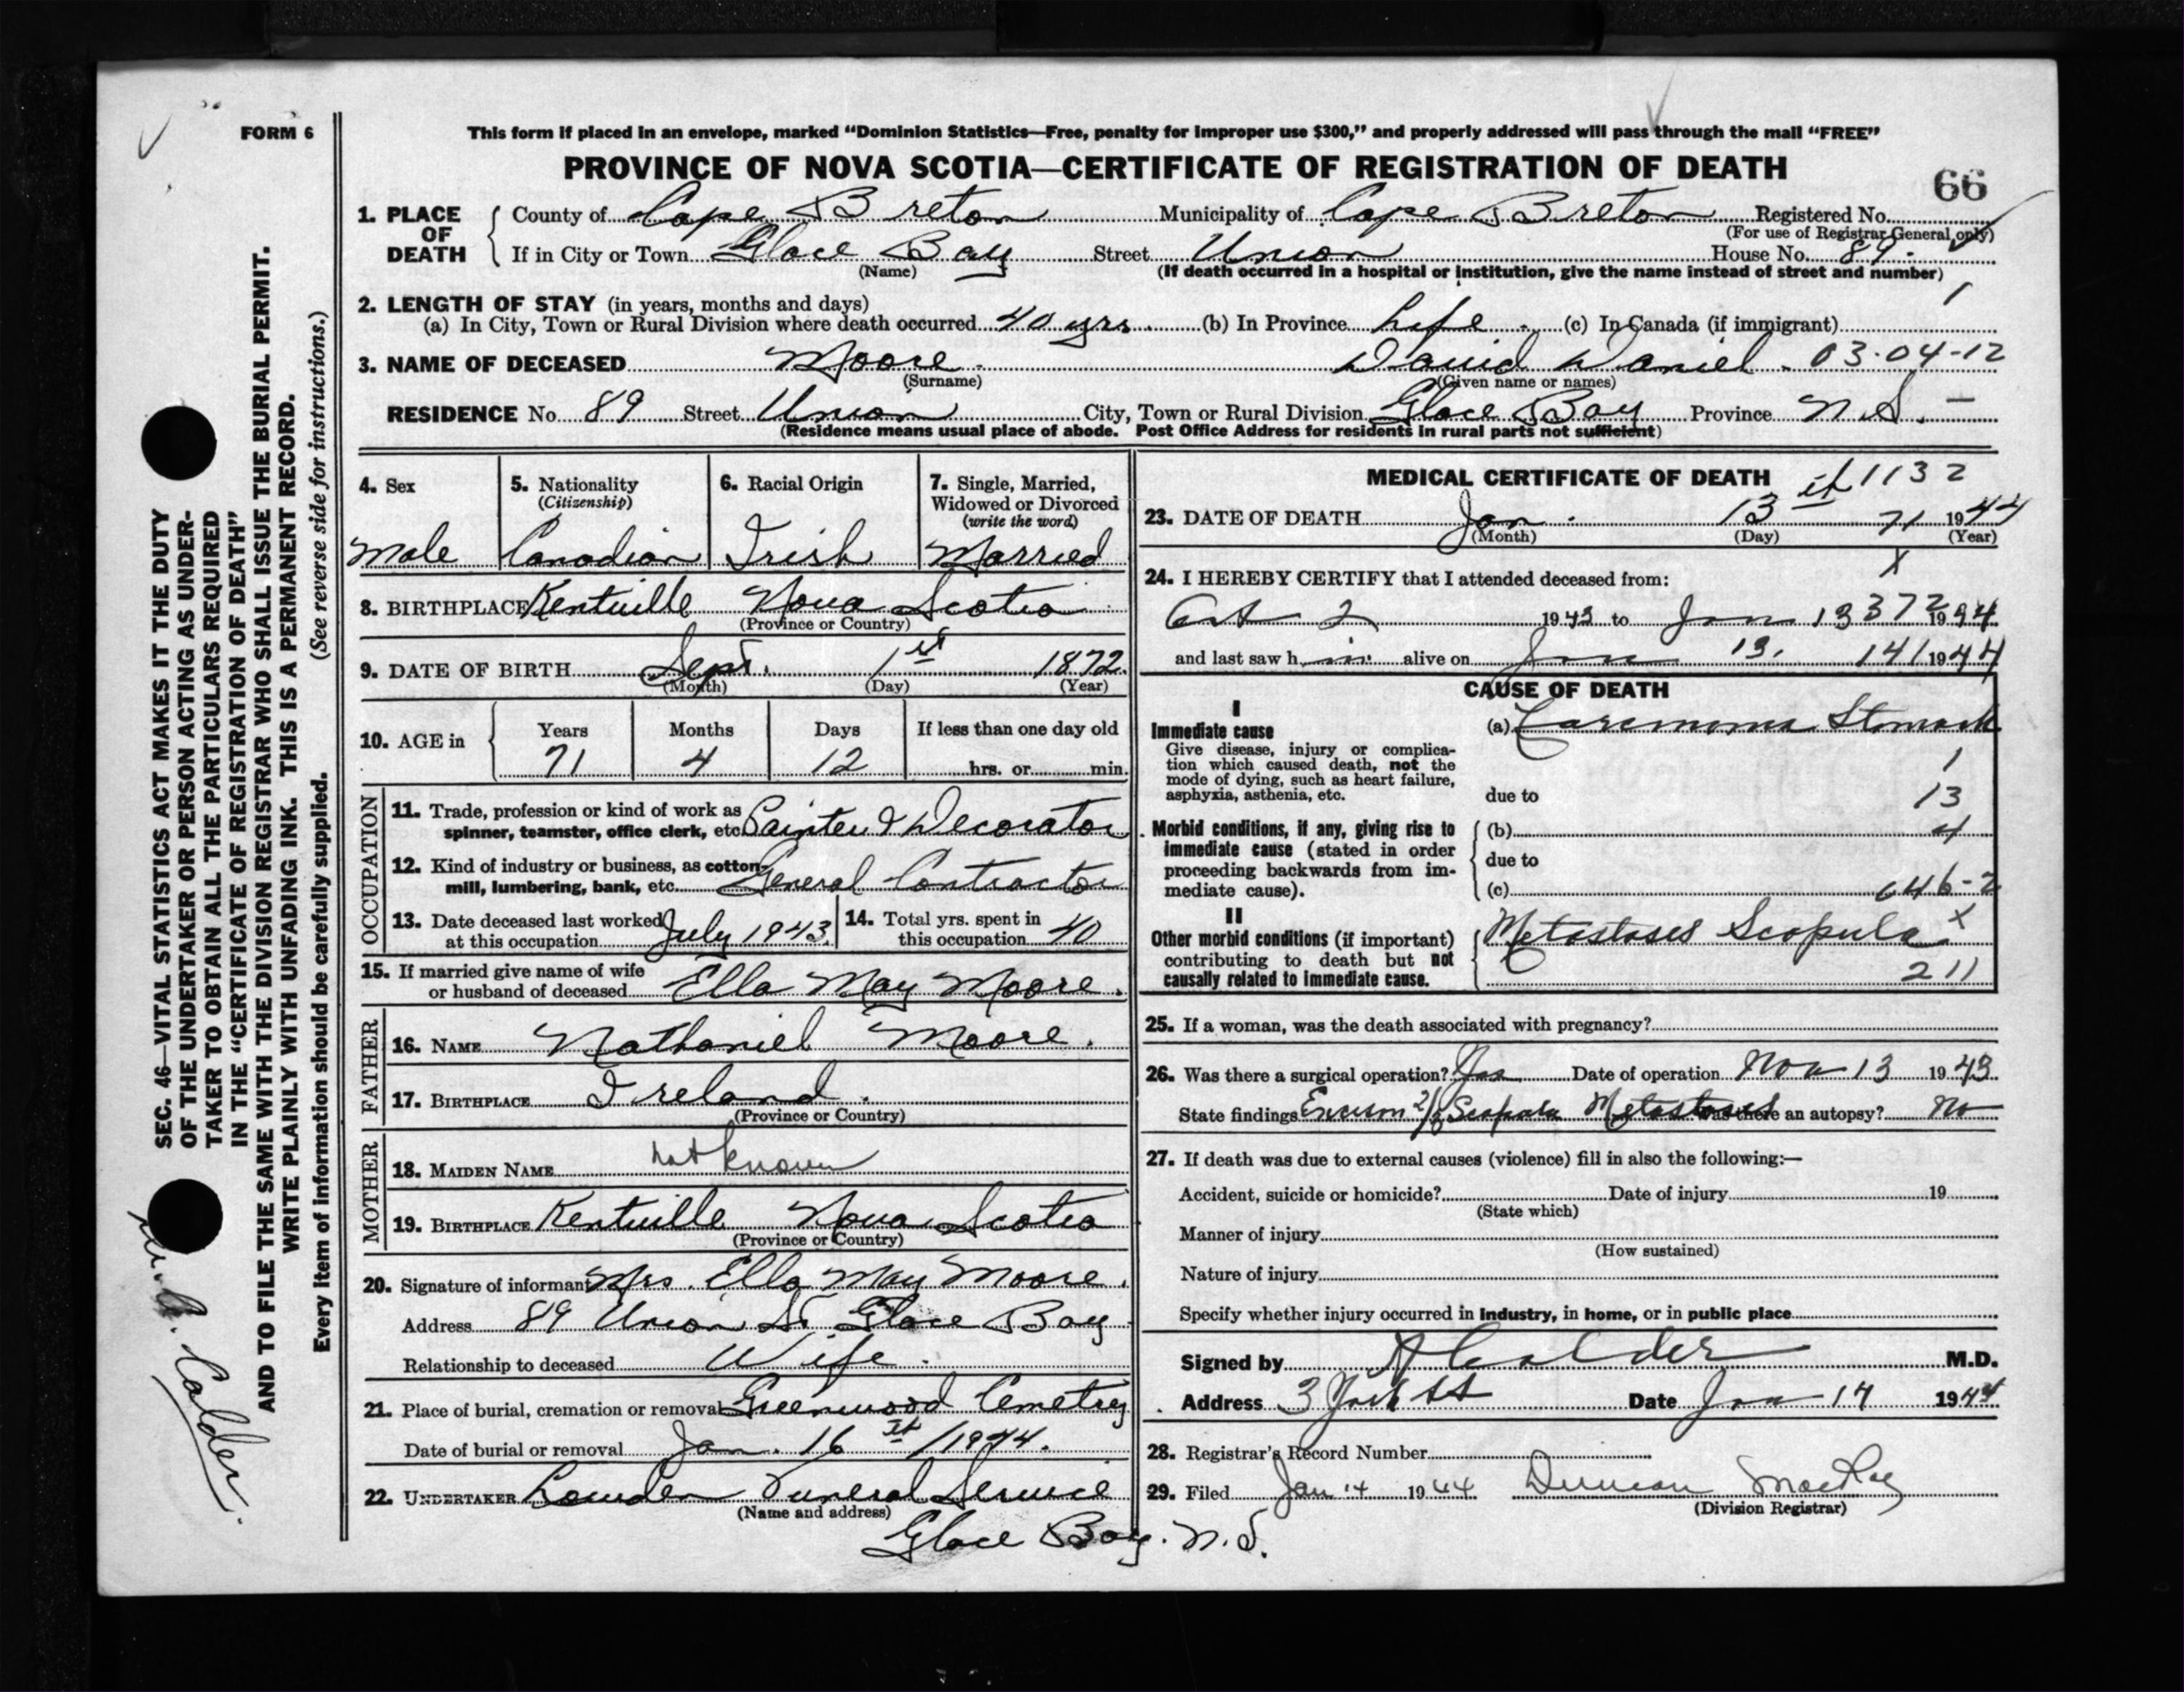 FORM 6
This form if placed in an envelope, marked “Dominion Statistics—Free, penalty for improper use $300,” and properly addressed will pass through the mail “FREE”
PROVINCE OF NOVA SCOTIA—CERTIFICATE OF REGISTRATION OF DEATH
66
1. PLACE OF DEATH County of Cape Breton Municipality of Cape Breton Registered No.
(For use of Registrar General only)
If in City or Town Glace Bay Street Union House No. 89.
(Name) (If death occurred in a hospital or institution, give the name instead of street and number)
1
2. LENGTH OF STAY (in years, months and days)
(a) In City, Town or Rural Division where death occurred 40 yrs. (b) In Province Life. (c) In Canada (if immigrant)
3. NAME OF DECEASED Moore. David Daniel. 03-04-12
(Surname) (Given name or names)
RESIDENCE No. 89 Street Union City, Town or Rural Division Glace Bay Province N.S. —
(Residence means usual place of abode. Post Office Address for residents in rural parts not sufficient)
4. Sex 5. Nationality 6. Racial Origin 7. Single, Married,
(Citizenship) Widowed or Divorced
(write the word)
Male Canadian Irish Married
8. BIRTHPLACE Kentville Nova Scotia
(Province or Country)
9. DATE OF BIRTH Sept. 1st 1872.
(Month) (Day) (Year)
10. AGE in Years Months Days If less than one day old
71 4 12 hrs. or min.
OCCUPATION
11. Trade, profession or kind of work as
spinner, teamster, office clerk, etc. Painter & Decorator
12. Kind of industry or business, as cotton-
mill, lumbering, bank, etc. General Contractor
13. Date deceased last worked
at this occupation July 1943.
14. Total yrs. spent in
this occupation 40
15. If married give name of wife
or husband of deceased Ella May Moore.
FATHER
16. NAME Nathaniel Moore.
17. BIRTHPLACE Ireland.
(Province or Country)
MOTHER
18. MAIDEN NAME not known
19. BIRTHPLACE Kentville Nova Scotia
(Province or Country)
20. Signature of informant Mrs. Ella May Moore.
Address 89 Union St. Glace Bay
Relationship to deceased Wife.
21. Place of burial, cremation or removal Greenwood Cemetry
Date of burial or removal Jan. 16th/1944.
22. UNDERTAKER Funeral Service
(Name and address)
Glace Bay. N.S.
MEDICAL CERTIFICATE OF DEATH
1132
23. DATE OF DEATH Jan. 13th 71 1944
(Month) (Day) (Year)
X
24. I HEREBY CERTIFY that I attended deceased from:
2 1943 to Jan 13 372 1944
and last saw h im alive on Jan 13. 141 1944
CAUSE OF DEATH
I
Immediate cause
Give disease, injury or complica-
tion which caused death, not the
mode of dying, such as heart failure,
asphyxia, asthenia, etc.
(a) Carcinoma Stomach
1
due to 13
Morbid conditions, if any, giving rise to
immediate cause (stated in order
proceeding backwards from im-
mediate cause).
(b) 4
due to
(c) 646-2
II
Other morbid conditions (if important)
contributing to death but not
causally related to immediate cause.
Metastases Scapula X
211
25. If a woman, was the death associated with pregnancy?
26. Was there a surgical operation? Yes Date of operation Nov 13 1943.
State findings Scapula Metastases Was there an autopsy? No
27. If death was due to external causes (violence) fill in also the following:—
Accident, suicide or homicide? Date of injury 19
(State which)
Manner of injury
(How sustained)
Nature of injury
Specify whether injury occurred in industry, in home, or in public place
Signed by A Calder M.D.
Address 3 York St Date Jan 14 1944
28. Registrar's Record Number
29. Filed Jan 14 1944 Duncan
(Division Registrar)
SEC. 46—VITAL STATISTICS ACT MAKES IT THE DUTY
OF THE UNDERTAKER OR PERSON ACTING AS UNDER-
TAKER TO OBTAIN ALL THE PARTICULARS REQUIRED
IN THE “CERTIFICATE OF REGISTRATION OF DEATH”
AND TO FILE THE SAME WITH THE DIVISION REGISTRAR WHO SHALL ISSUE THE BURIAL PERMIT.
WRITE PLAINLY WITH UNFADING INK. THIS IS A PERMANENT RECORD.
Every item of information should be carefully supplied. (See reverse side for instructions.)
Calder.